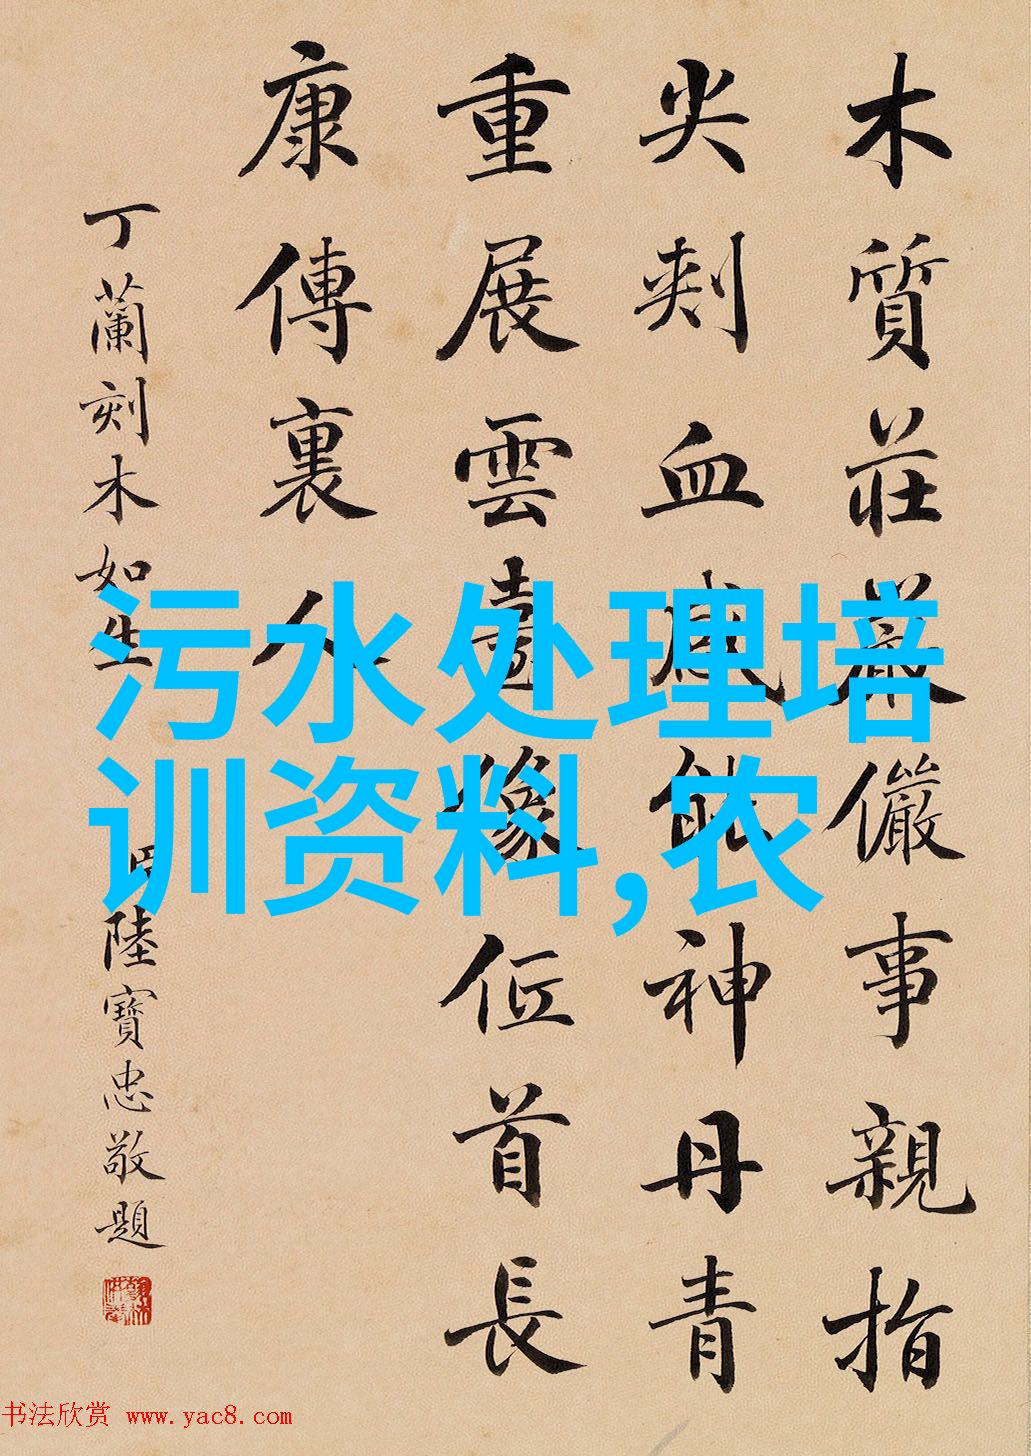 木質莊嚴儼事親指
尖刾血感能神丹青
重展雲臺像伍首長
康傳裏人
丁蘭刻木如生
陸寶忠敬題
污水处理培
训资料,农
书法欣赏 www.yac8.com